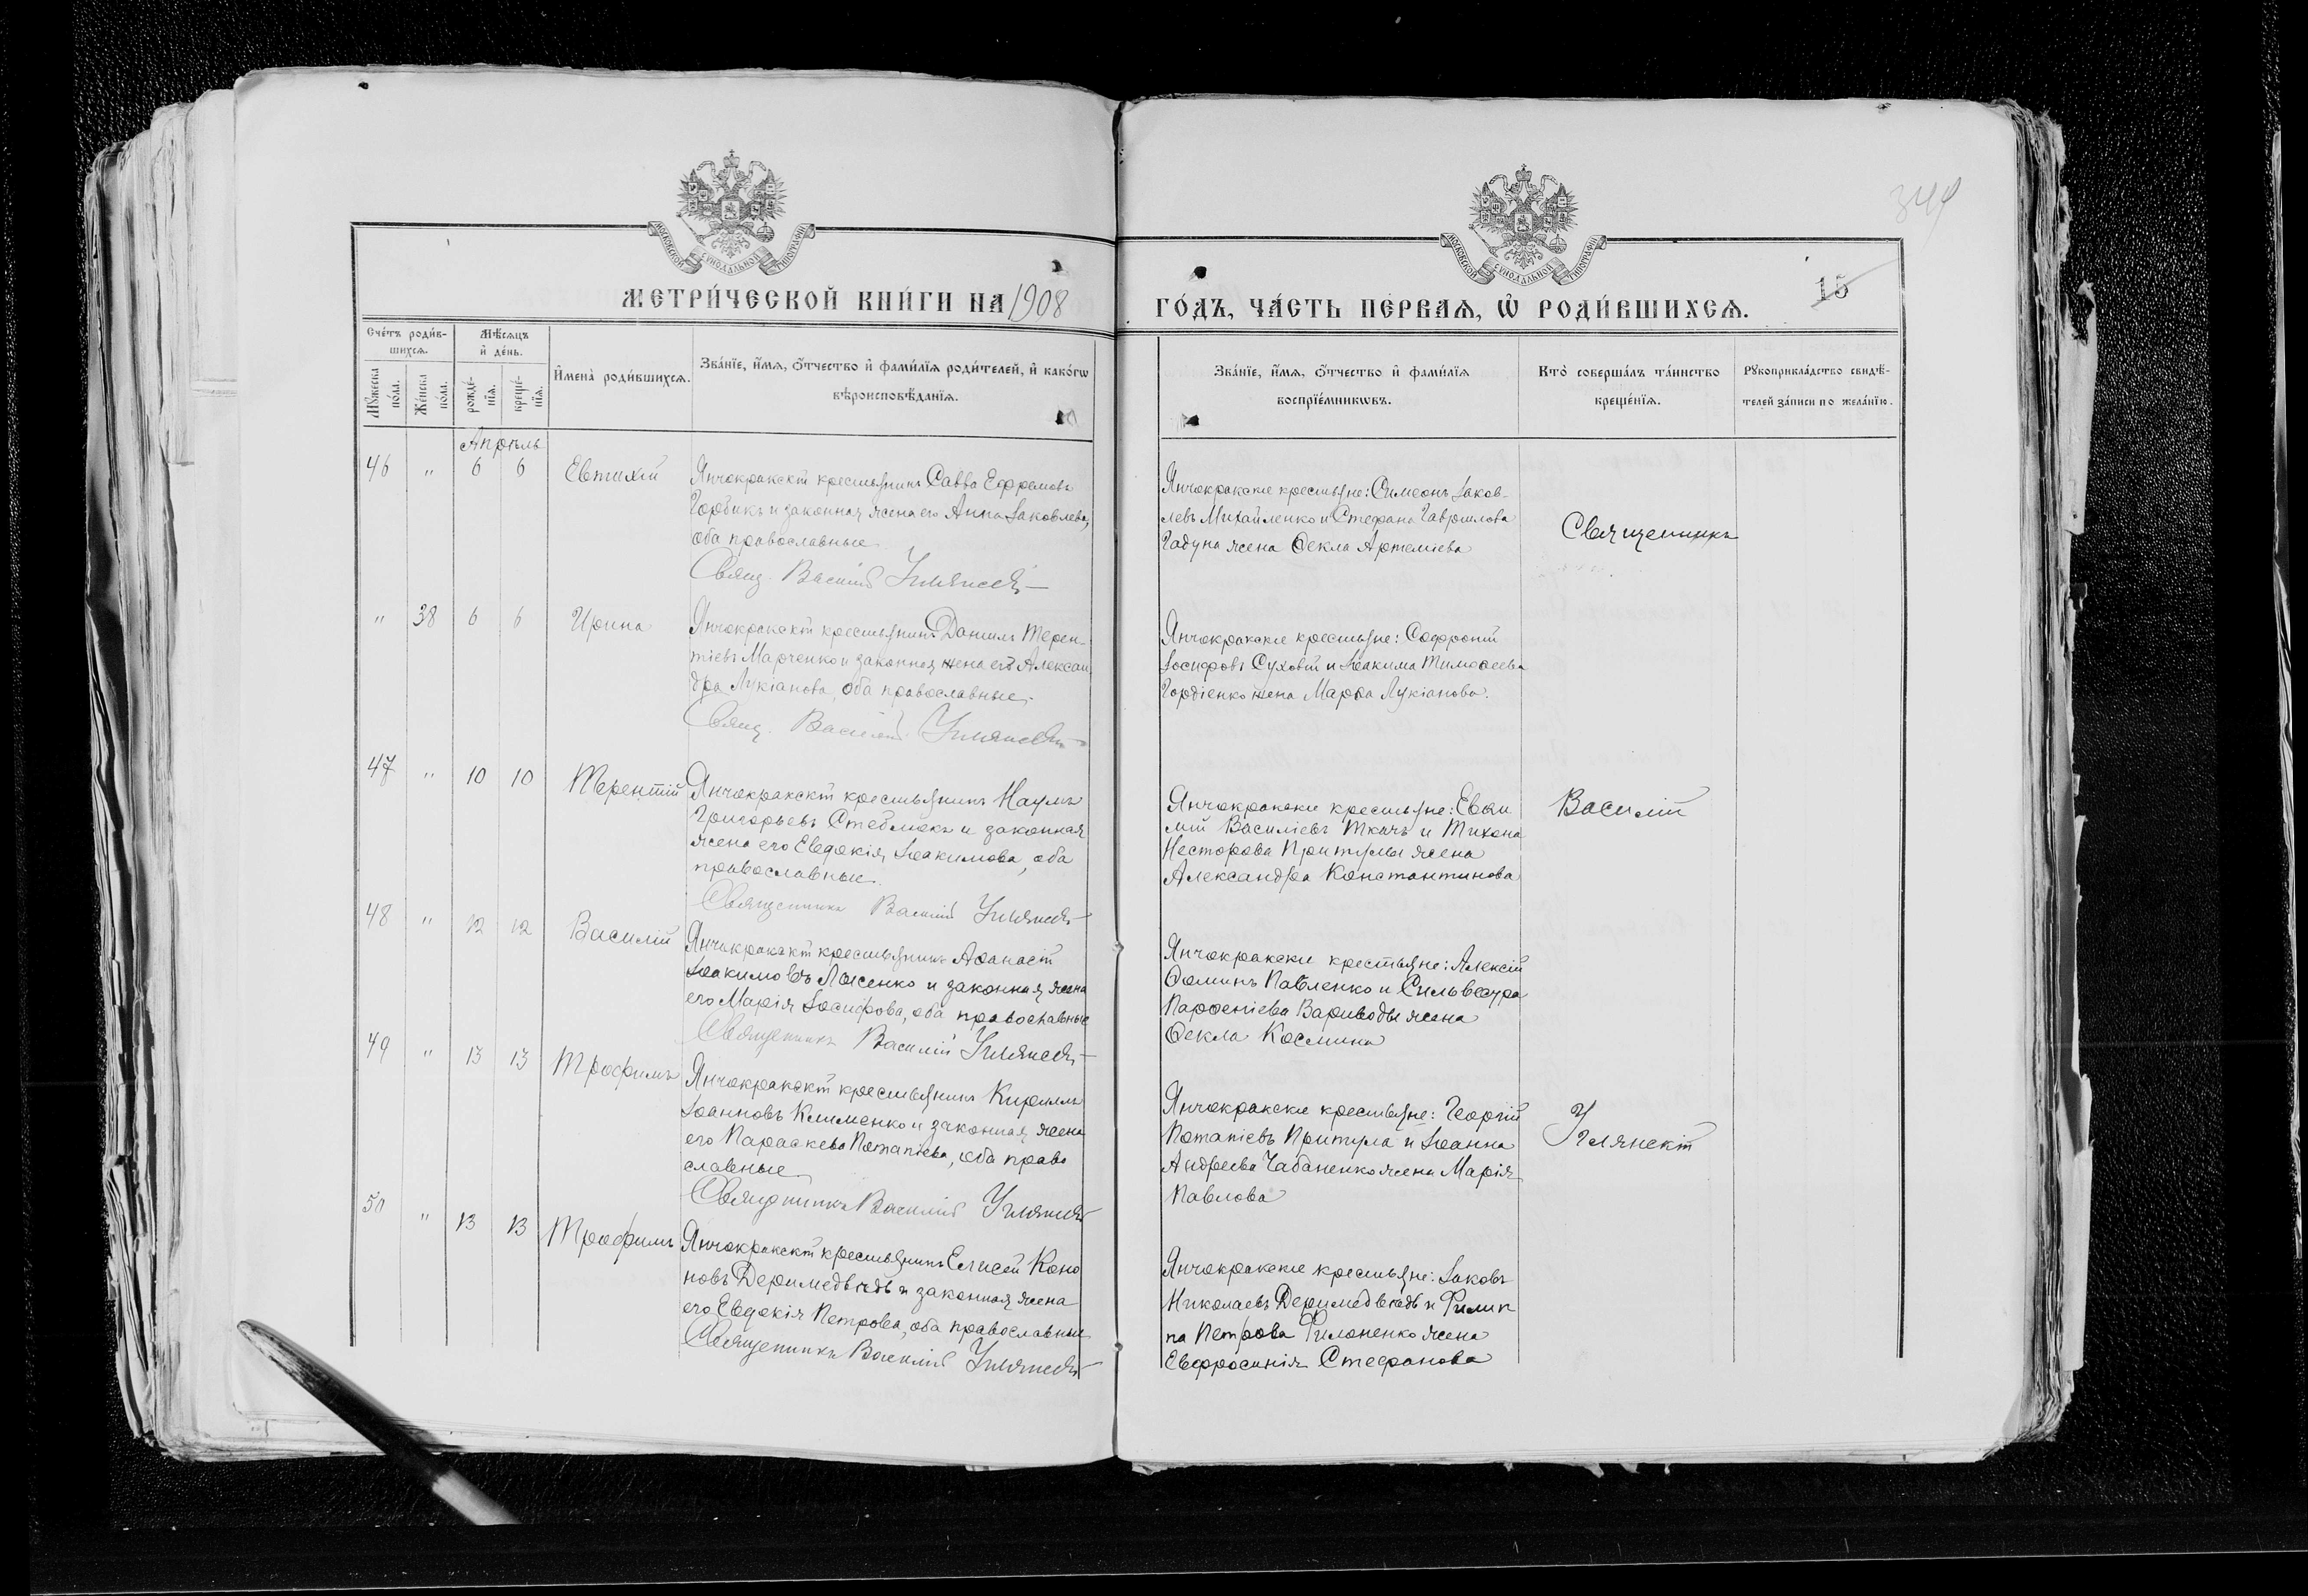 344
МОСКОВСКОЙ СѴНОДАЛЬНОЙ ТИПОГРАФІИ
МОСКОВСКОЙ СѴНОДАЛЬНОЙ ТИПОГРАФІИ
МЕТРИ́ЧЕСКОЙ КНИ́ГИ НА 1908
ГО́ДЪ, ЧА́СТЬ ПЕ́РВАѦ, Ѡ҆ РОДИ́ВШИХСѦ.
15
Сче́тъ роди́в-
шихсѧ.
Мꙋ́жеска
по́ла.
Же́нска
по́ла.
Мѣ́сѧцъ
и҆ де́нь.
рожде́-
нїѧ.
креще́-
нїѧ.
И҆мена̀ роди́вшихсѧ.
Зва́нїе, и҆́мѧ, ѻ҆́тчество и҆ фами́лїѧ роди́телей, и҆ како́гѡ
вѣроисповѣ́данїѧ.
Зва́нїе, и҆́мѧ, ѻ҆́тчество и҆ фами́лїѧ
воспрїе́мникѡвъ.
Кто̀ соверша́лъ та́инство
креще́нїѧ.
Рꙋкоприкла́дство свидѣ́-
телей за́писи по жела́нїю.
Апрѣль
46 " 6 6 Евтихій
Янчокракскій крестьянинъ Савва Ефремовъ
Горбикъ и законная жена его Анна Іаковлева,
оба православные
Свящ. Василій Углянскій
Янчокракскіе крестьяне: Симеонъ Іаков-
левъ Михайленко и Стефана Гаврилова
Гадуна жена Ѳекла Артеміева
Священникъ
" 38 6 6 Ирина
Янчокракскій крестьянинъ Даніилъ Терен-
тіевъ Марченко и законная жена его Алексан
дра Лукіанова, оба православные.
Свящ. Василій Углянскій
Янчокракскіе крестьяне: Софроній
Іосифовъ Суховій и Іоакима Тимоѳеева
Гордіенко жена Марѳа Лукіанова.
47 " 10 10 Терентій
Янчокракскій крестьянинъ Наумъ
Григорьевъ Стеблюкъ и законная
жена его Евдокія Іоакимова, оба
православные.
Священникъ Василій Углянскій
Янчокракскіе крестьяне: Евѳи
мій Василіевъ Ткачъ и Тихона
Несторова Притулы жена
Александра Константинова
Василій
48 " 12 12 Василій
Янчокракскій крестьянинъ Аѳанасій
Іоакимовъ Лысенко и законная жена
его Марія Іосифова, оба православные
Священникъ Василій Углянскій
Янчокракскіе крестьяне: Алексій
Ѳоминъ Павленко и Сильвестра
Парѳеніева Вариводы жена
Ѳекла Космина
49 " 13 13 Трофимъ
Янчокракскій крестьянинъ Кириллъ
Іоанновъ Клименко и законная жена
его Параскева Потапіева, оба право
славные
Священникъ Василій Углянскій
Янчокракскіе крестьяне: Георгій
Потапіевъ Притула и Іоанна
Андреева Чабаненко жена Марія
Павлова
Углянскій
50 " 13 13 Трофимъ
Янчокракскій крестьянинъ Елисей Коно
новъ Деримедвѣдь и законная жена
его Евдокія Петрова, оба православные
Священникъ Василій Углянскій
Янчокракскіе крестьяне: Іаковъ
Николаевъ Деримедвѣдь и Филип
па Петрова Филоненко жена
Евфросинія Стефанова